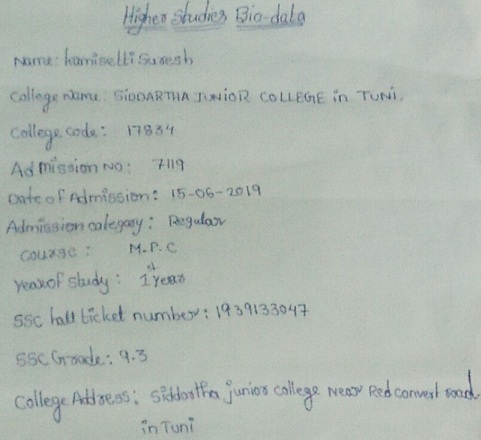 Higher Studies Bio-data
Name: kamisetti Suresh
College Name: SIDDARTHA JUNIOR COLLEGE in TUNI.
College code: 17834
Admission No: 7119
Date of Admission: 15-06-2019
Admission category: Regular
course: M.P.C
Year of study: 1st Year
SSC hall ticket number: 1939133047
SSC Grade: 9.3
College Address: Siddartha junior college Near Red convert road
in Tuni